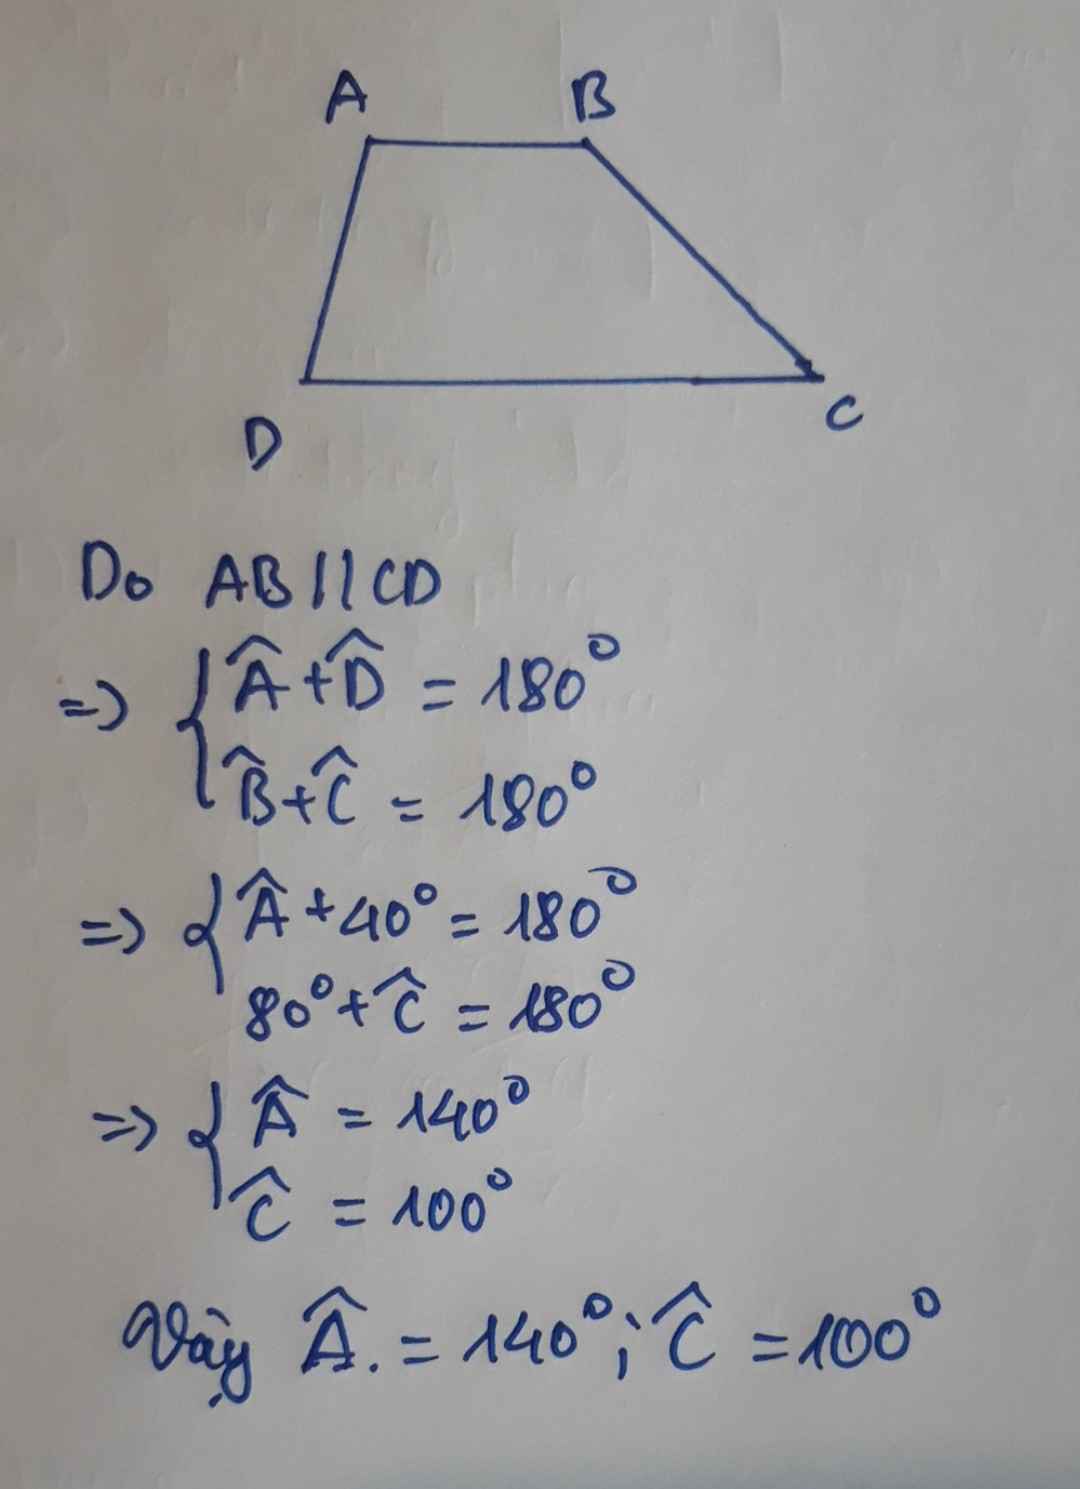 A B
D C
Do AB // CD
=> { Â + D̂ = 180°
B̂ + Ĉ = 180°
=> { Â + 40° = 180°
80° + Ĉ = 180°
=> { Â = 140°
Ĉ = 100°
Vậy Â. = 140°; Ĉ = 100°